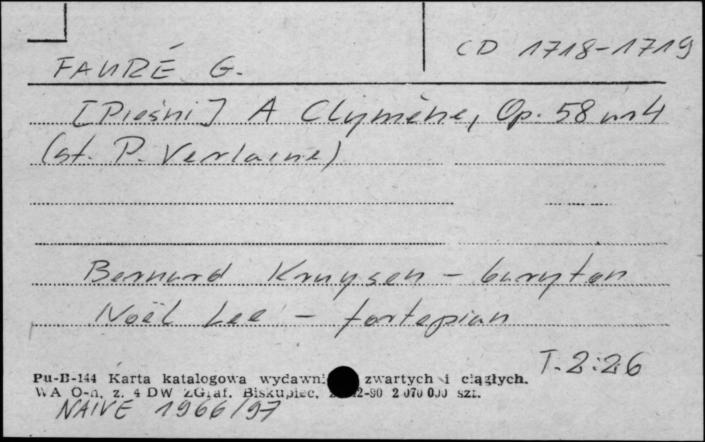 CD 1718-1719
FAURÉ G.
[Pieśni] A Clymène, Op. 58 nr 4
(sł. P. Verlaine)
Bernard Kruysen - baryton
Noël Lee - fortepian
T. 2:26
Pu-B-144 Karta katalogowa wydawni zwartych i ciągłych.
WA O-n, z. 4 DW ZGraf. Biskupiec, 2-90 2 070 000 szt.
NAIVE 1966/97